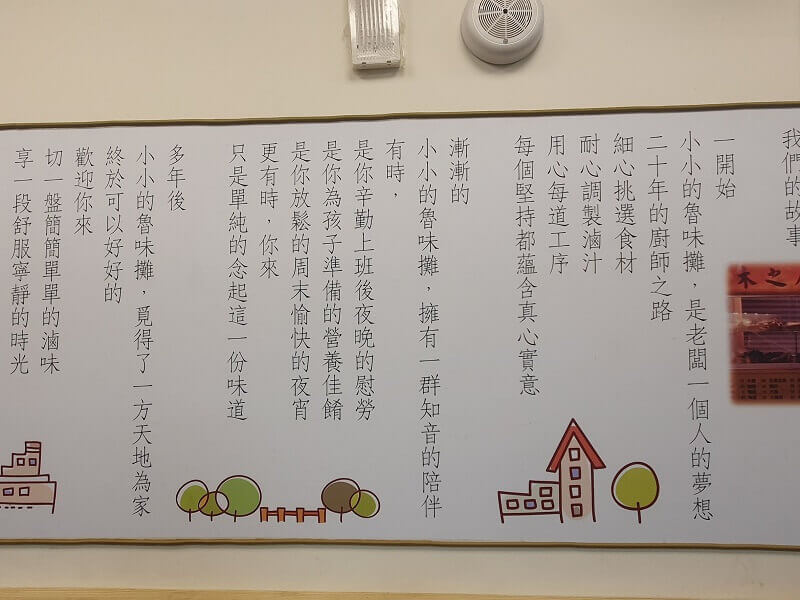 我們的故事
一開始
小小的魯味攤，是老闆一個人的夢想
二十年的廚師之路
細心挑選食材
耐心調製滷汁
用心每道工序
每個堅持都蘊含真心實意
漸漸的
小小的魯味攤，擁有一群知音的陪伴
有時，
是你辛勤上班後夜晚的慰勞
是你為孩子準備的營養佳餚
是你放鬆的周末愉快的夜宵
更有時，你來
只是單純的念起這一份味道
多年後
小小的魯味攤，覓得了一方天地為家
終於可以好好的
歡迎你來
切一盤簡簡單單的滷味
享一段舒服寧靜的時光
木之